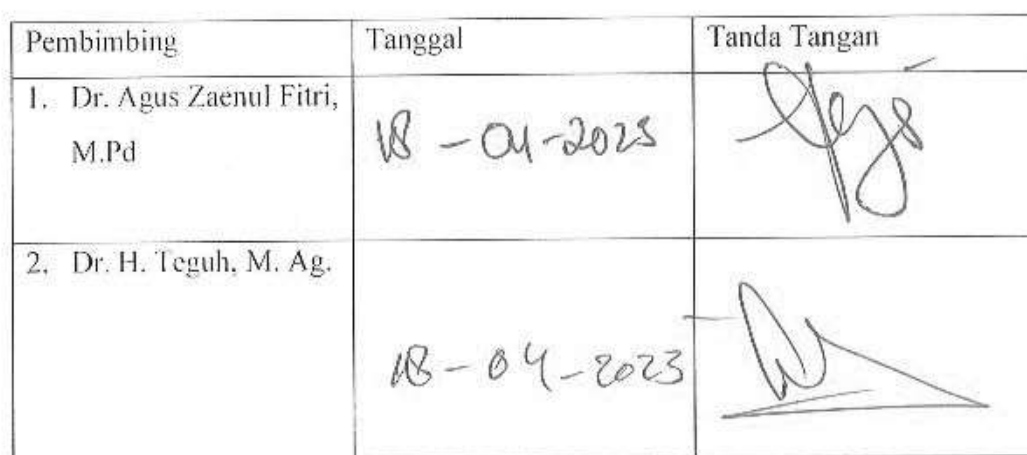 Pembimbing Tanggal Tanda Tangan
1. Dr. Agus Zaenul Fitri,
M.Pd
18 - 04 - 2023
2. Dr. H. Teguh, M. Ag.
18 - 04 - 2023